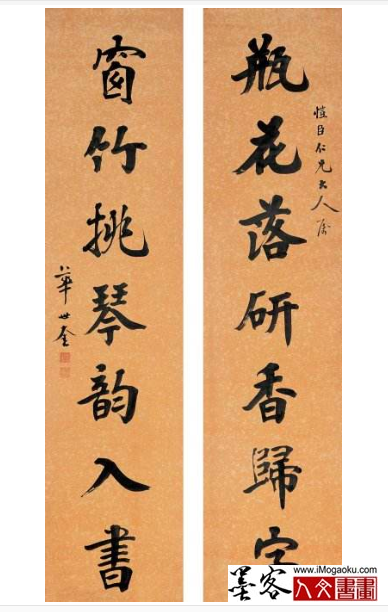 瓶花落研香歸字
臣仁兄大人
窗竹挑琴韵入書
華世奎
www.iMogaoku.com
墨客
人文書畫